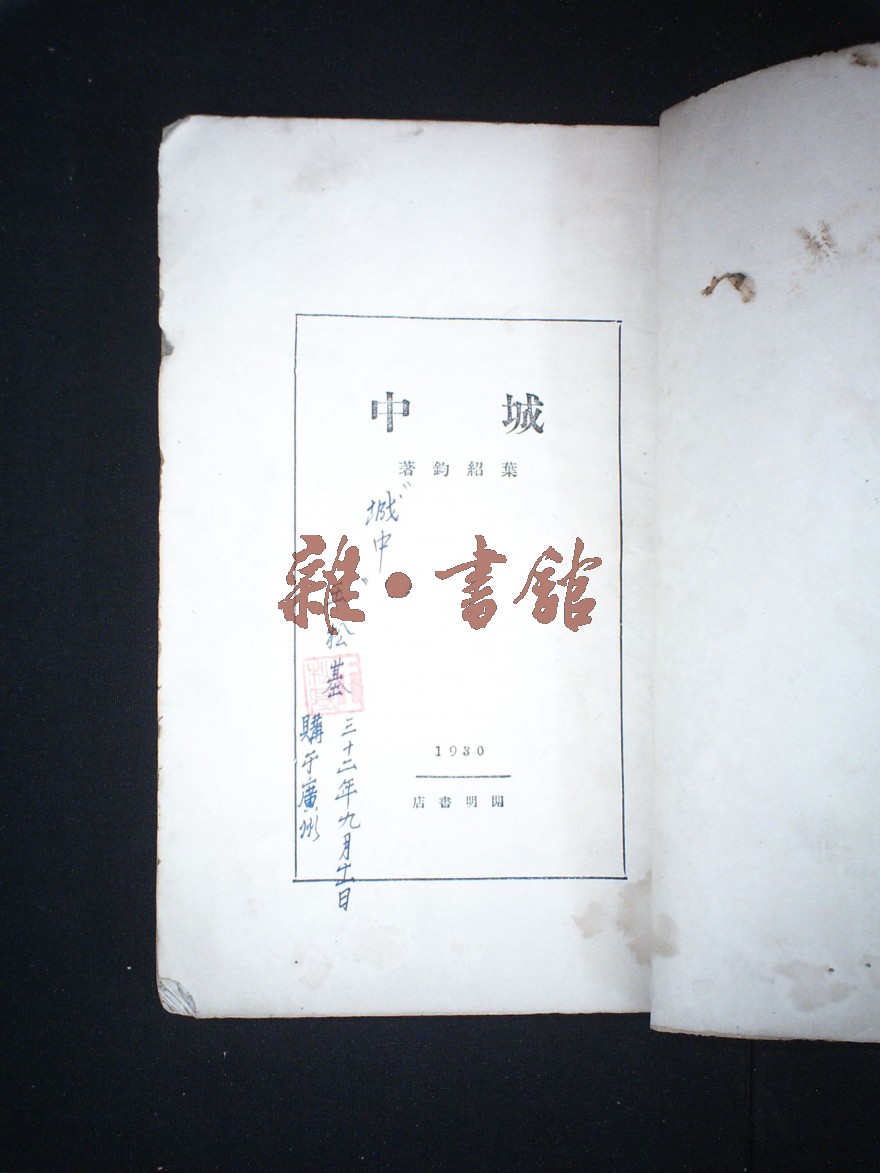 城中
葉紹鈞著
"城中"
松基
三十二年九月十一日
購于廣州
雜·書館
1930
開明書店